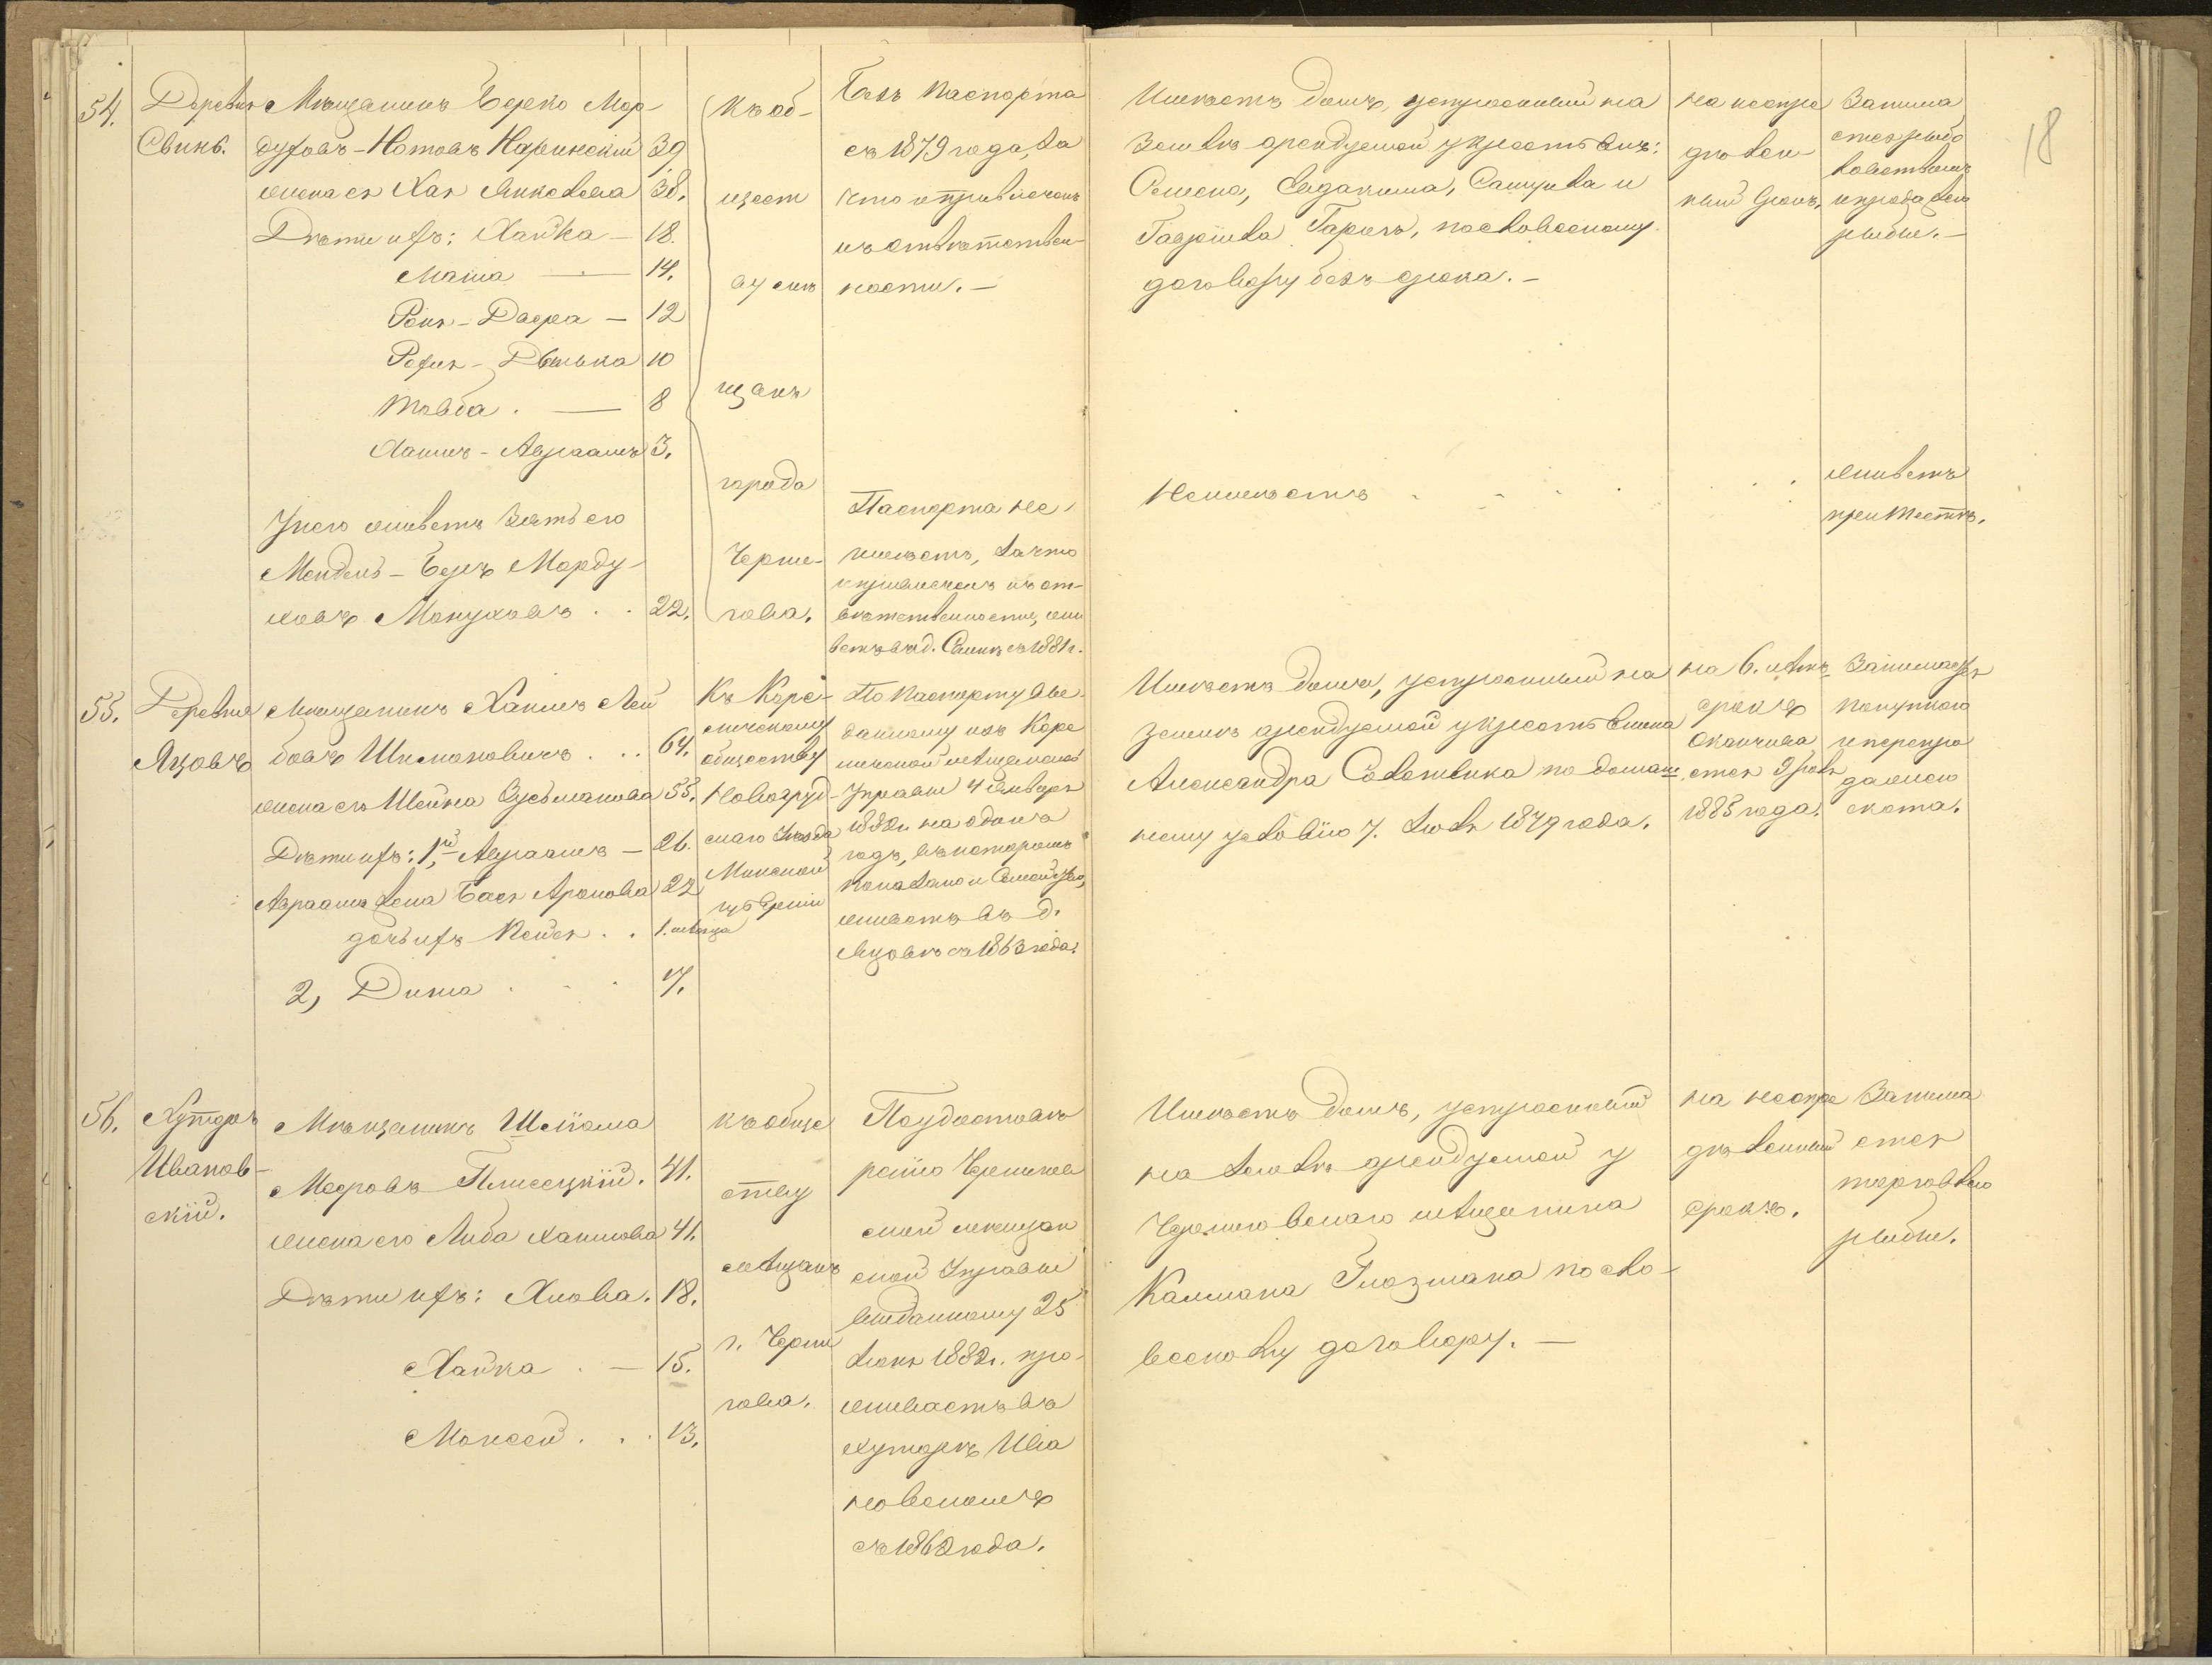 18
54.
Деревня
Свинь.
Мѣщанинъ Берко Мор-
духовъ-Нотовъ Каринскій 39
жена ея Хая Янкелева 38.
Дѣти ихъ: Хайка — 18.
Маша — 14.
Роня-Двера — 12
Рохля-Двенька 10
Товба. — 8
Хаимъ-Авраамъ 3.
У него живетъ Зять его
Мендель-Беръ Морду-
ховъ Монуховъ . . 22.
Къ об-
щест
ву мѣ
щанъ
города
Черни-
гова.
Безъ паспорта
съ 1879 года, за
что и привлеченъ
къ отвѣтствен-
ности. —
Паспорта не
имѣетъ, за что
и привлеченъ къ от-
вѣтственности, жи
ветъ въ д. съ 1881 г.
Имѣетъ домъ, устроенный на
землѣ арендуемой у крестьянъ:
Семена, Евдокима, Самуила и
Гаврiила Гарусъ, по словесному
договору безъ срока. —
Не имѣетъ . . . .
на неопре
дѣлен-
ный срокъ.
Занима
ется рыбо
ловствомъ
и продажею
рыбы. —
Живетъ
при тестѣ.
55.
Деревня
Яцовъ
Мѣщанинъ Хаимъ Лей
бовъ Шимоновичъ . . . 64.
жена его Шейна Зусьманова 55.
Дѣти ихъ: 1й Авраамъ — 26.
Авраама жена Бася Аронова 22
дочь ихъ Пейся . . 1. мѣсяца
2, Дина . . . 17.
Къ Коре-
личскому
обществу
Новогруд-
скаго Уѣзда
Минской
губерніи
По паспорту вы-
данному изъ Коре
личской мѣщанской
Управы 4 Января
1882 г. на одинъ
годъ, въ которомъ
показано и Семейство,
живетъ въ д.
Яцовѣ съ 1863 года.
Имѣетъ домъ, устроенный на
землѣ арендуемой у крестьянина
Александра по домаш
нему условію 7. Іюля 1879 года.
на 6. лѣтъ,
срокъ
оканчива
ется 9 Іюля
1885 года.
Занимается
покупкою
и перепро
дажею
скота.
56.
Хуторъ
Иванов-
скій.
Мѣщанинъ Шліома
Мееровъ Плисецкій. 41.
жена его Либа Хаимова 41.
Дѣти ихъ: Хиова. 18.
Хайка . — 15.
Моисей . . . 13.
къ обще
ству
мѣщанъ
г. Черни
гова.
По удостовѣ
ренію Чернигов
ской мѣщан
ской Управы
выданному 25
Іюня 1882 г. про-
живаетъ въ
хуторѣ Ива
новскомъ
съ 1862 года.
Имѣетъ домъ, устроенный
на землѣ арендуемой у
Черниговскаго мѣщанина
Калмана Глозмана по сло-
весному договору. —
на неопре
дѣленный
срокъ.
Занима
ется
торговлею
рыбы.